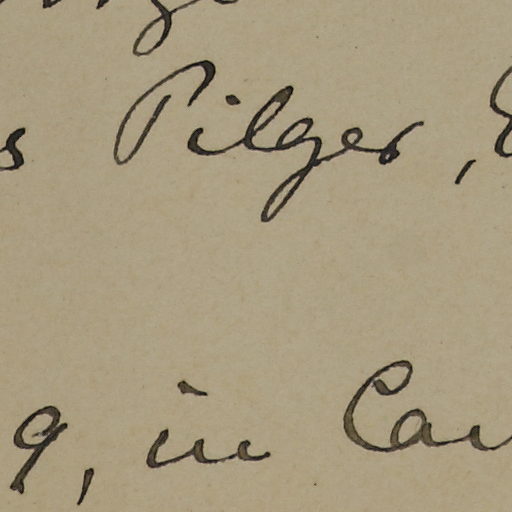 s Pilger,
9, in Car